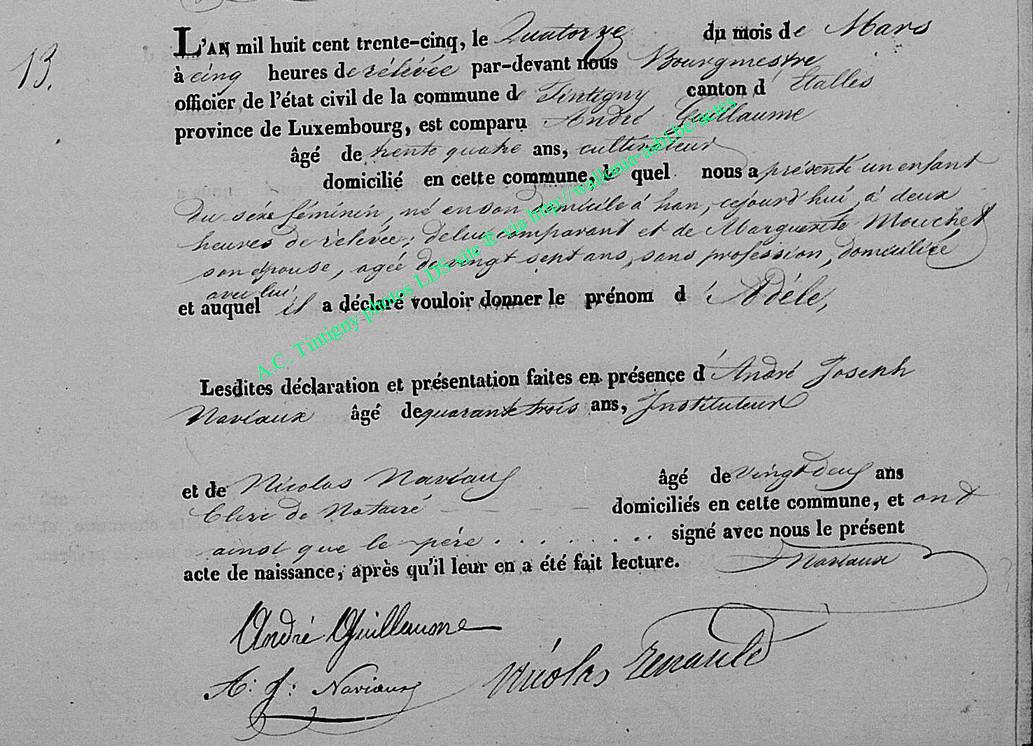 13.
L'AN mil huit cent trente-cinq, le Quatorze du mois de Mars
à cinq heures de rélévée par-devant nous Bourgmestre
officier de l'état civil de la commune de Tintigny canton d'Etalles
province de Luxembourg, est comparu André Guillaume
âgé de trente quatre ans, cultivateur
domicilié en cette commune, le quel nous a présenté un enfant
du séxe féminin, né en son domicile à han, cejourd'hui, à deux
heures de rélevée; de lui comparant et de Marguerite Mouchet
son épouse, agée de vingt sept ans, sans profession, domiciliée
avec lui
et auquel il a déclaré vouloir donner le prénom d'Adèle,
Lesdites déclaration et présentation faites en présence d'André Joseph
Naviaux âgé de quarante trois ans, Instituteur
et de Nicolas Naviaux âgé de vingt deux ans
Clerc de Notaire domiciliés en cette commune, et ont
ainsi que le père . . . . . . . . signé avec nous le présent
acte de naissance, après qu'il leur en a été fait lecture.
Naviaux
André Guillaume
A: J: Naviaux Nicolas
A.C. Tintigny photos LDS-site &